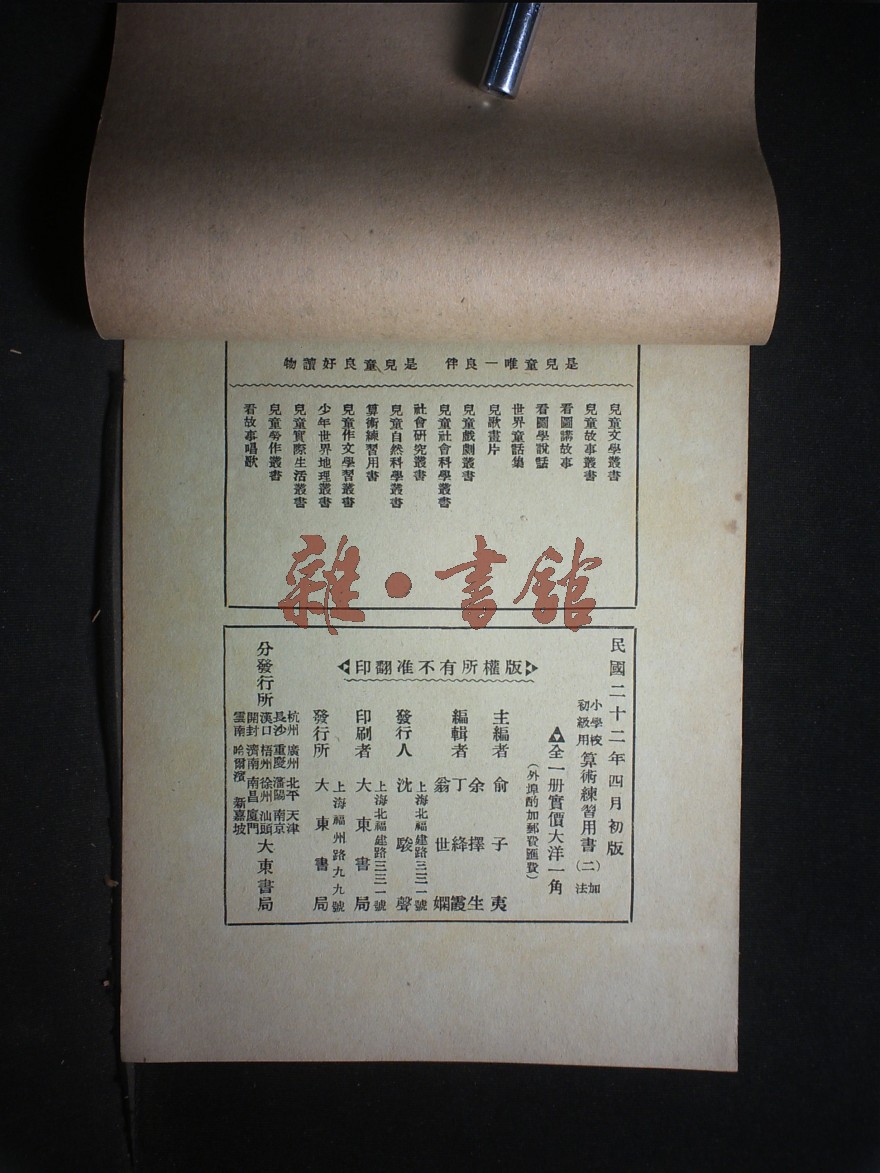 是兒童唯一良伴 是兒童良好讀物
兒童文學叢書
兒童故事叢書
看圖講故事
看圖學說話
世界童話集
兒歌畫片
兒童戲劇叢書
兒童社會科學叢書
社會研究叢書
兒童自然科學叢書
算術練習用書
兒童作文學習叢書
少年世界地理叢書
兒童實際生活叢書
兒童勞作叢書
看故事唱歌
雜·書館
民國二十二年四月初版
小學校初級用 算術練習用書 (二) 加法
全一册實價大洋一角
(外埠酌加郵費匯費)
版權所有不准翻印
主編者 俞子夷
編輯者 余擇生 丁絳霞 翁世嫻
發行人 沈駿聲
上海北福建路三三一號
印刷者 大東書局
上海北福建路三三一號
發行所 大東書局
上海福州路九九號
分發行所 大東書局
杭州 廣州 北平 天津
長沙 重慶 瀋陽 南京
漢口 梧州 徐州 汕頭
開封 濟南 南昌 廈門
雲南 哈爾濱 新嘉坡